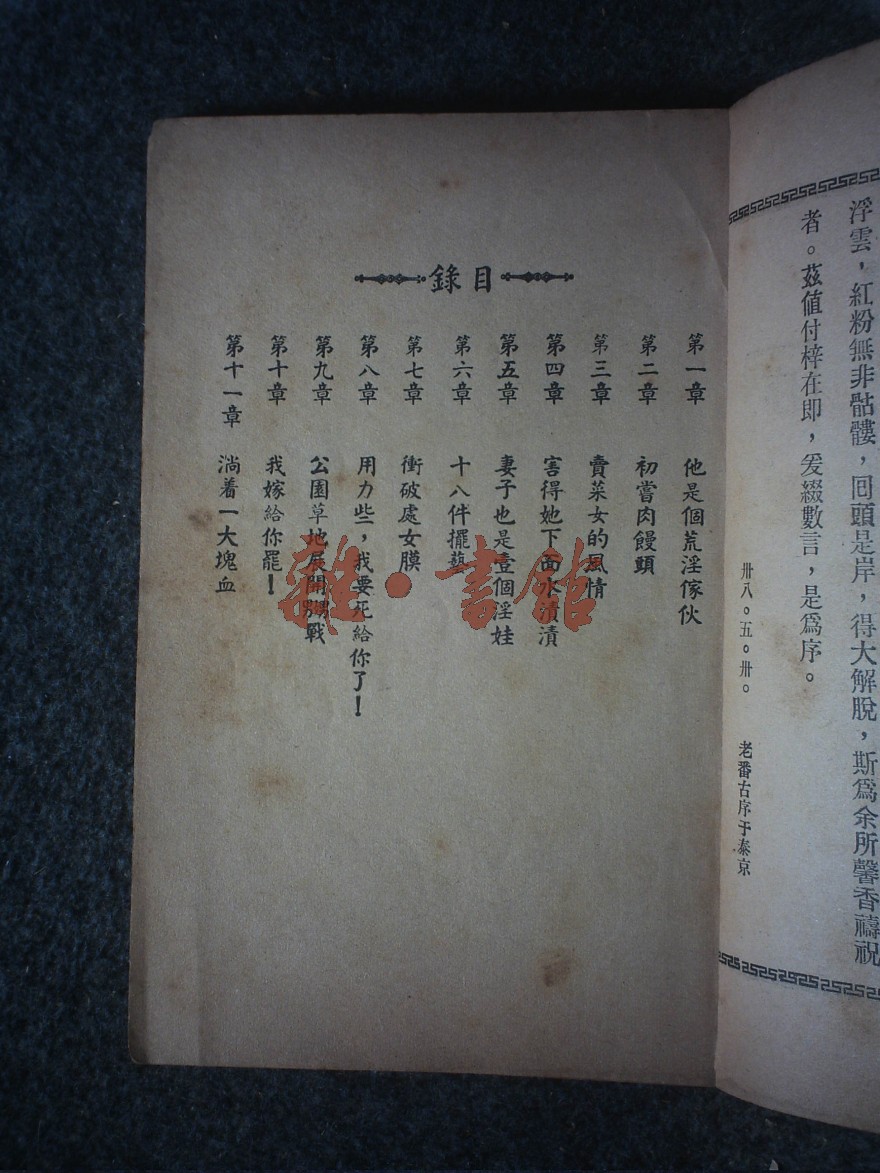 浮雲，紅粉無非骷髏，囘頭是岸，得大解脫，斯爲余所馨香禱祝
者。茲值付梓在即，爰綴數言，是爲序。
卅八。五。卅。　老番古序于泰京
目錄
第一章　他是個荒淫傢伙
第二章　初嘗肉饅頭
第三章　賣菜女的風情
第四章　害得她下面水漬漬
第五章　妻子也是壹個淫娃
第六章　十八件擺藝
第七章　衝破處女膜
第八章　用力些，我要死給你了！
第九章　公園草地展開戰
第十章　我嫁給你罷！
第十一章　淌着一大塊血
雜·書館